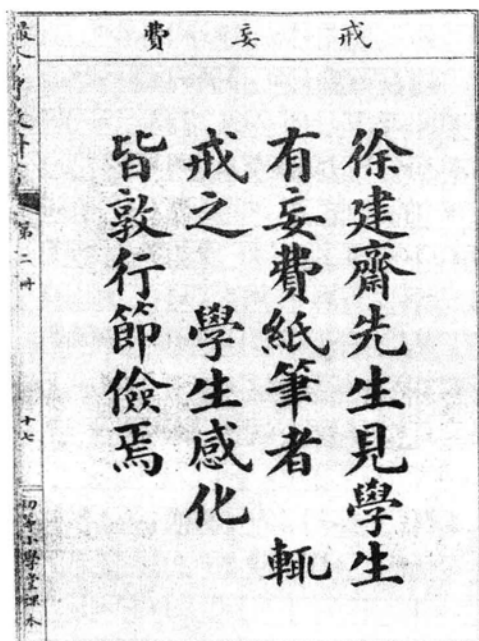 戒妄費
徐建齋先生見學生
有妄費紙筆者　輒
戒之　學生感化
皆敦行節儉焉
第二册
十七
初等小學堂課本